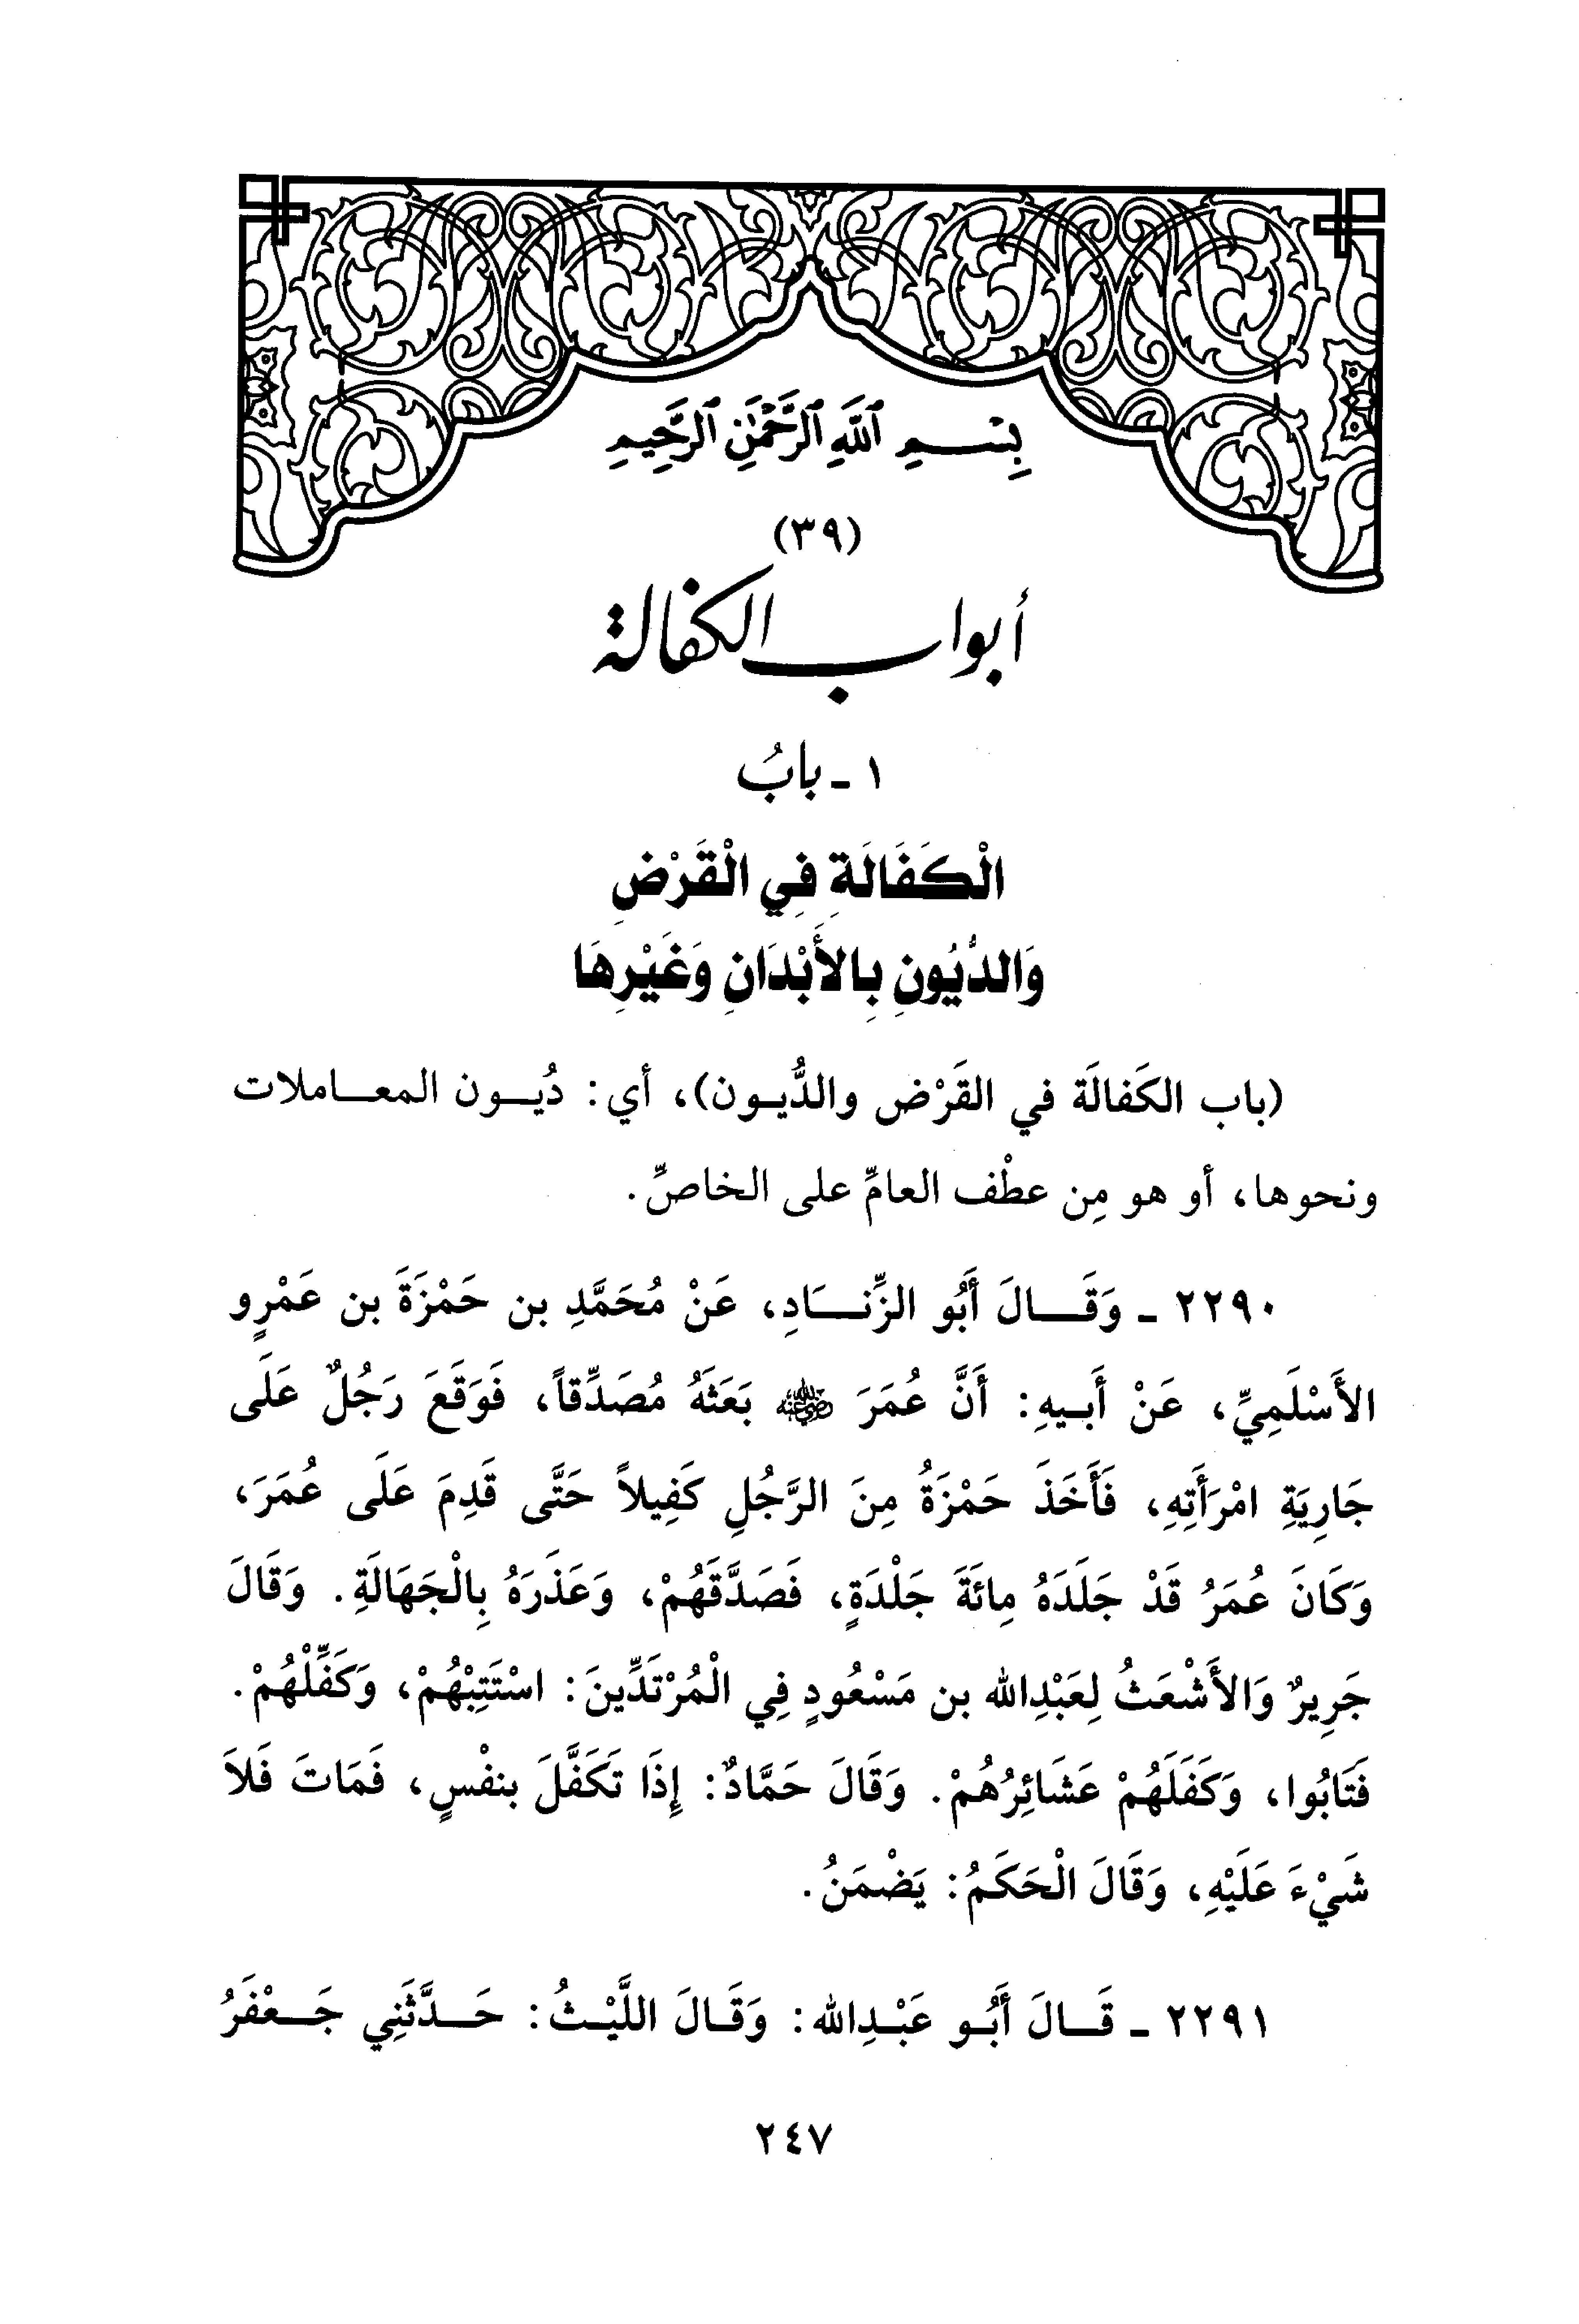 بِسْمِ ٱللَّهِ ٱلرَّحْمَٰنِ ٱلرَّحِيمِ
(٣٩)
أبواب الكفالة
١ - بابُ
الْكَفَالَةِ فِي الْقَرْضِ
وَالدُّيُونِ بِالأَبْدَانِ وَغَيْرِهَا
(باب الكَفالَة في القَرْض والدُّيـون)، أي: دُيـون المعـاملات
ونحوها، أو هو مِن عطْف العامِّ على الخاصِّ.
٢٢٩٠ - وَقَـالَ أَبُو الزِّنَـادِ، عَنْ مُحَمَّدِ بن حَمْزَةَ بن عَمْرٍو
الأَسْلَمِيِّ، عَنْ أَبـيهِ: أَنَّ عُمَرَ رضي الله عنه بَعَثَهُ مُصَدِّقاً، فَوَقَعَ رَجُلٌ عَلَى
جَارِيَةِ امْرَأَتِهِ، فَأَخَذَ حَمْزَةُ مِنَ الرَّجُلِ كَفِيلاً حَتَّى قَدِمَ عَلَى عُمَرَ،
وَكَانَ عُمَرُ قَدْ جَلَدَهُ مِائَةَ جَلْدَةٍ، فَصَدَّقَهُمْ، وَعَذَرَهُ بِالْجَهَالَةِ. وَقَالَ
جَرِيرٌ وَالأَشْعَثُ لِعَبْدِالله بن مَسْعُودٍ فِي الْمُرْتَدِّينَ: اسْتَتِبْهُمْ، وَكَفِّلْهُمْ.
فَتَابُوا، وَكَفَلَهُمْ عَشَائِرُهُمْ. وَقَالَ حَمَّادٌ: إِذَا تَكَفَّلَ بنفْسٍ، فَمَاتَ فَلاَ
شَيْءَ عَلَيْهِ، وَقَالَ الْحَكَمُ: يَضْمَنُ.
٢٢٩١ - قَـالَ أَبُـو عَبْـدِالله: وَقَـالَ اللَّيْـثُ: حَـدَّثَنِي جَـعْفَرُ
٢٤٧